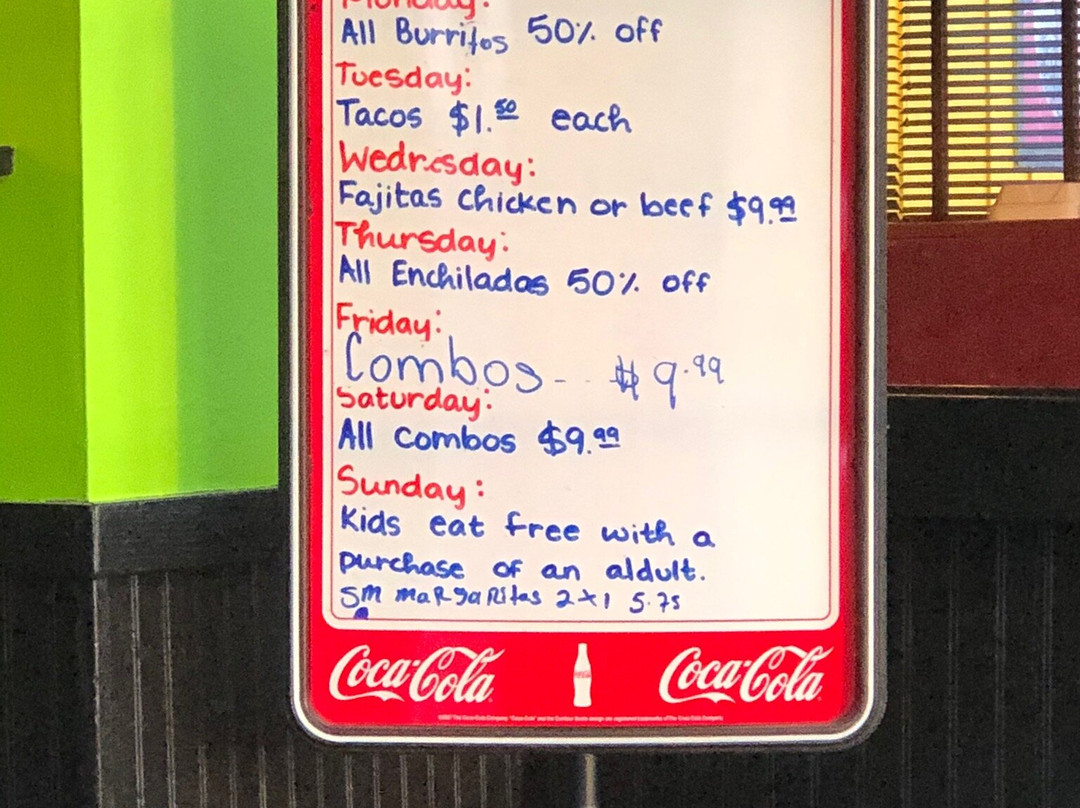 Monday:
All Burritos 50% off
Tuesday:
Tacos $1.50 each
Wednesday:
Fajitas chicken or beef $9.99
Thursday:
All Enchiladas 50% off
Friday:
Combos - - - $9.99
Saturday:
All Combos $9.99
Sunday:
Kids eat free with a
purchase of an aldult.
SM maRgaRitas 2x1 5.75
Coca-Cola Coca-Cola